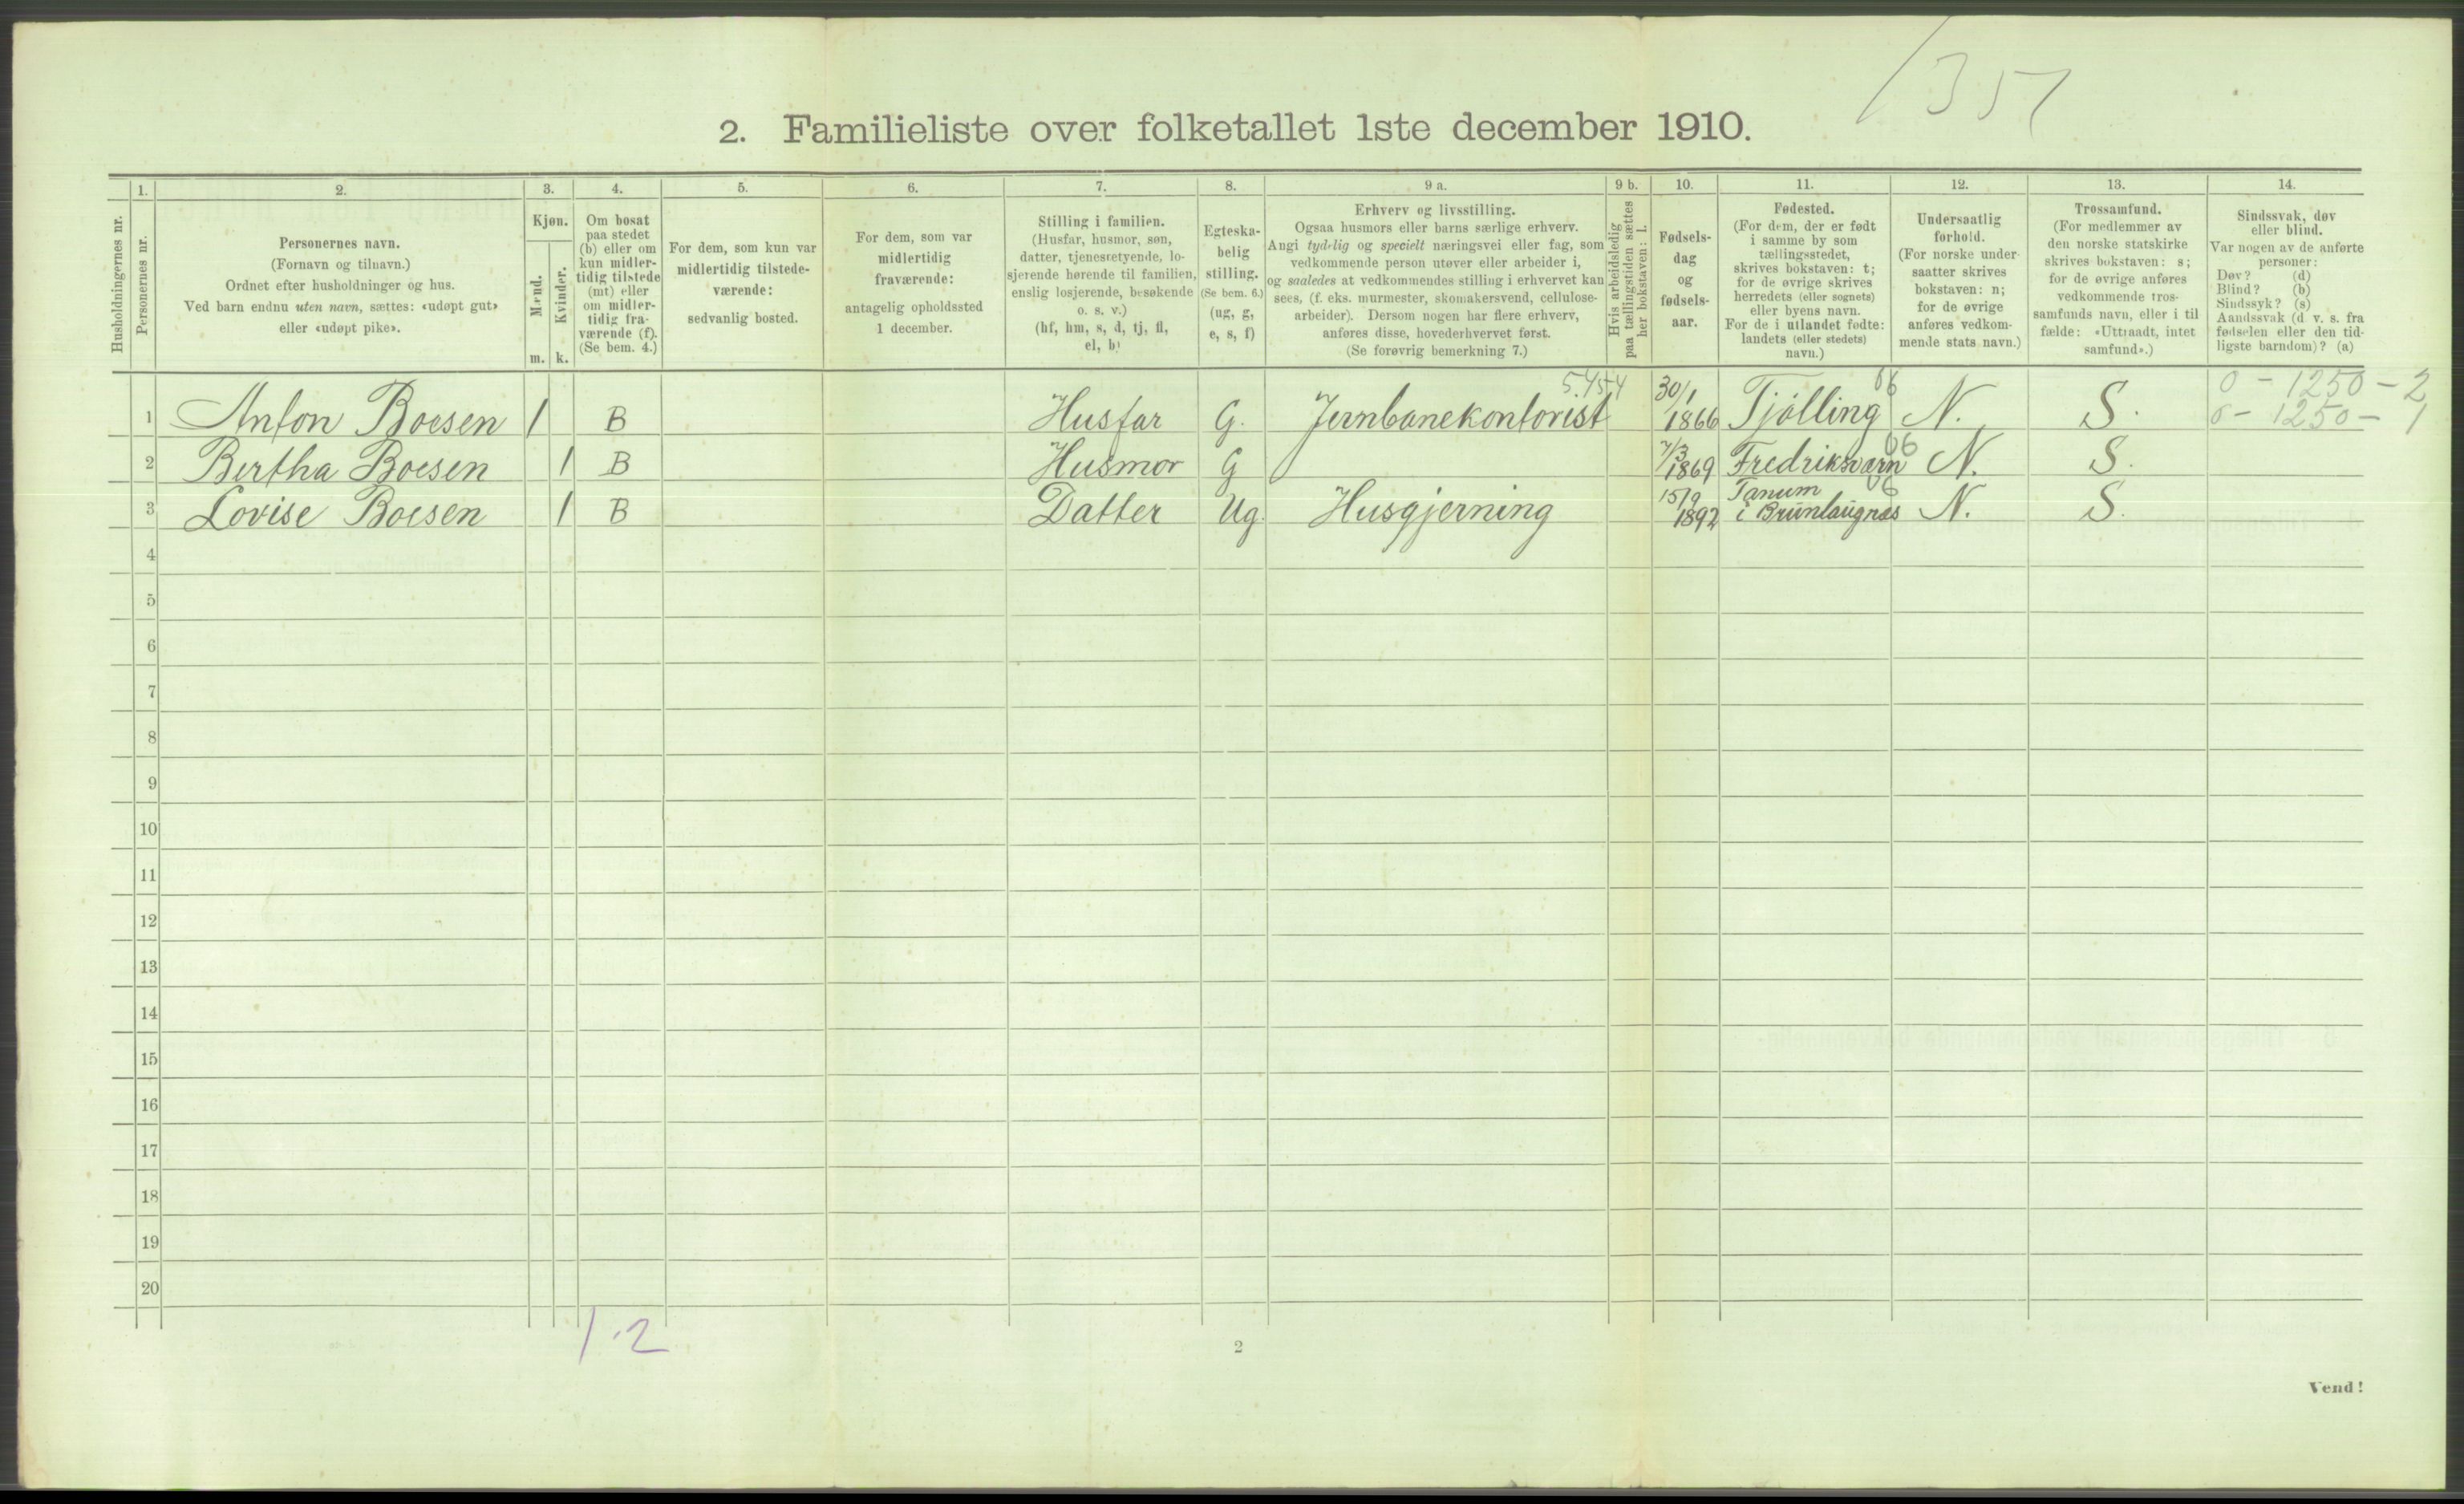 1351
2. Familieliste over folketallet 1ste december 1910.
1. 2. 3. 4. 5. 6. 7. 8. 9 a. 9 b. 10. 11. 12. 13. 14.
Husholdningernes nr.
Personernes nr.
Personernes navn.
(Fornavn og tilnavn.)
Ordnet efter husholdninger og hus.
Ved barn endnu uten navn, sættes: «udøpt gut»
eller «udøpt pike».
Kjøn.
Mænd.
Kvinder.
m. k.
Om bosat
paa stedet
(b) eller om
kun midler-
tidig tilstede
(mt) eller
om midler-
tidig fra-
værende (f).
(Se bem. 4.)
For dem, som kun var
midlertidig tilstede-
værende:
sedvanlig bosted.
For dem, som var
midlertidig
fraværende:
antagelig opholdssted
1 december.
Stilling i familien.
(Husfar, husmor, søn,
datter, tjenestetyende, lo-
sjerende hørende til familien,
enslig losjerende, besøkende
o. s. v.)
(hf, hm, s, d, tj, fl,
el, b)
Egteska-
belig
stilling.
(Se bem. 6.)
(ug, g,
e, s, f)
Erhverv og livsstilling.
Ogsaa husmors eller barns særlige erhverv.
Angi tydelig og specielt næringsvei eller fag, som
vedkommende person utøver eller arbeider i,
og saaledes at vedkommendes stilling i erhvervet kan
sees, (f. eks. murmester, skomakersvend, cellulose-
arbeider). Dersom nogen har flere erhverv,
anføres disse, hovederhvervet først.
(Se forøvrig bemerkning 7.)
Hvis arbeidsledig
paa tællingstiden sættes
her bokstaven: l.
Fødsels-
dag
og
fødsels-
aar.
Fødested.
(For dem, der er født
i samme by som
tællingsstedet,
skrives bokstaven: t;
for de øvrige skrives
herredets (eller sognets)
eller byens navn.
For de i utlandet fødte:
landets (eller stedets)
navn.)
Undersaatlig
forhold.
(For norske under-
saatter skrives
bokstaven: n;
for de øvrige
anføres vedkom-
mende stats navn.)
Trossamfund.
(For medlemmer av
den norske statskirke
skrives bokstaven: s;
for de øvrige anføres
vedkommende tros-
samfunds navn, eller i til
fælde: «Uttraadt, intet
samfund».)
Sindssvak, døv
eller blind.
Var nogen av de anførte
personer:
Døv? (d)
Blind? (b)
Sindssyk? (s)
Aandssvak (d v. s. fra
fødselen eller den tid-
ligste barndom)? (a)
5.454 66 0 - 1250 - 2
1 Anton Boesen 1 B Husfar G. Jernbanekontorist 30/1 1866 Tjølling N. S. 0 - 1250 - 1
2 Bertha Boesen 1 B Husmor G 7/3 1869 Fredriksværn 66 N. S.
3 Lovise Boesen 1 B Datter Ug. Husgjerning 15/9 1892 Tanum i Brunlaugnæs 66 N. S.
4
5
6
7
8
9
10
11
12
13
14
15
16
17
18
19
20
1.2
2
Vend!